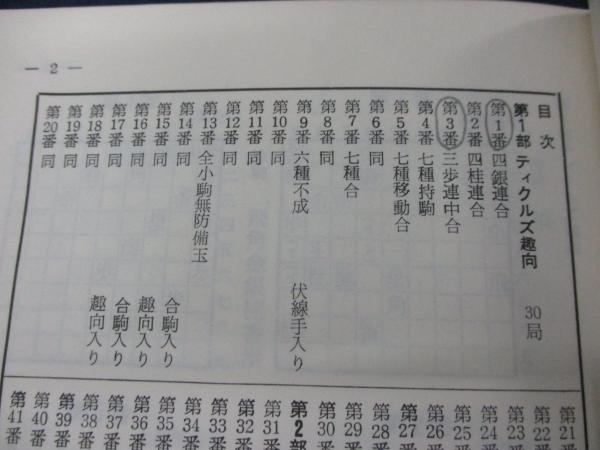 — 2 —
目次
第1部 ティクルズ趣向 30局
第1番 四銀連合
第2番 四桂連合
第3番 三歩連中合
第4番 七種持駒
第5番 七種移動合
第6番 同
第7番 七種合
第8番 同
第9番 六種不成 伏線手入り
第10番 同
第11番 同
第12番 同
第13番 全小駒無防備玉
第14番 同
第15番 同 合駒入り
第16番 同 趣向入り
第17番 同 合駒入り
第18番 同 趣向入り
第19番 同
第20番 同
第21番
第22番
第23番
第24番
第25番
第26番
第27番
第28番
第29番
第30番
第2部
第31番
第32番
第33番
第34番
第35番
第36番
第37番
第38番
第39番
第40番
第41番